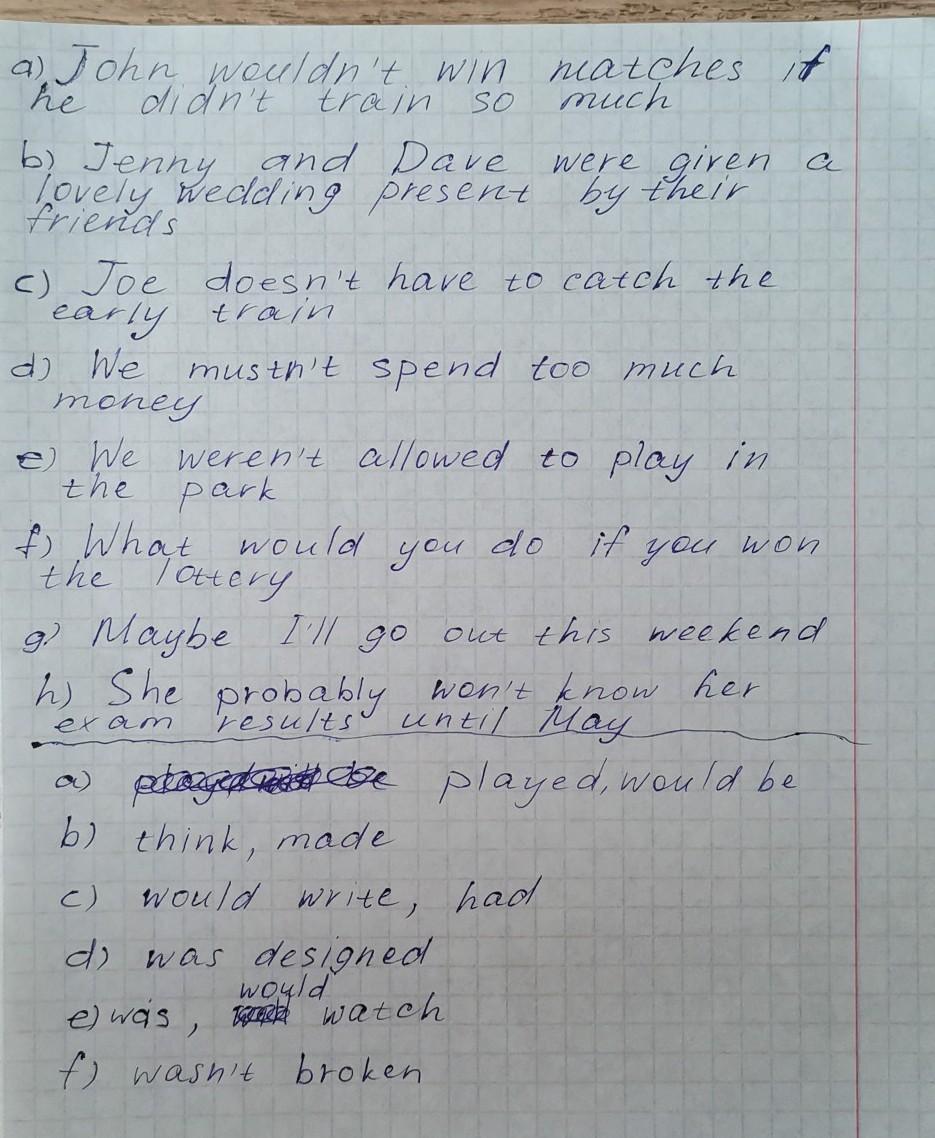 a) John wouldn't win matches if
he didn't train so much
b) Jenny and Dave were given a
lovely wedding present by their
friends
c) Joe doesn't have to catch the
early train
d) We mustn't spend too much
money
e) We weren't allowed to play in
the park
f) What would you do if you won
the lottery
g) Maybe I'll go out this weekend
h) She probably won't know her
exam results until May
a) played, would be
b) think, made
c) would write, had
d) was designed
would
e) was, watch
f) wasn't broken